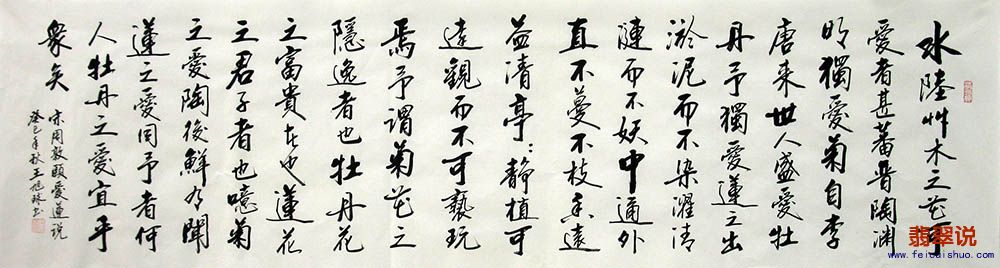 水陸艸木之花可
愛者甚蕃晋陶淵
明獨愛菊自李
唐来世人盛愛牡
丹予獨愛蓮之出
淤泥而不染濯清
漣而不妖中通外
直不蔓不枝香遠
益清亭:静植可
遠觀而不可褻玩
焉予謂菊花之
隱逸者也牡丹花
之富貴者也蓮花
之君子者也噫菊
之愛陶後鮮有聞
蓮之愛同予者何
人牡丹之愛宜乎
衆矣
宋周敦頤愛蓮説
癸巳年秋王旭书
翡翠说
www.feicuishuo.com